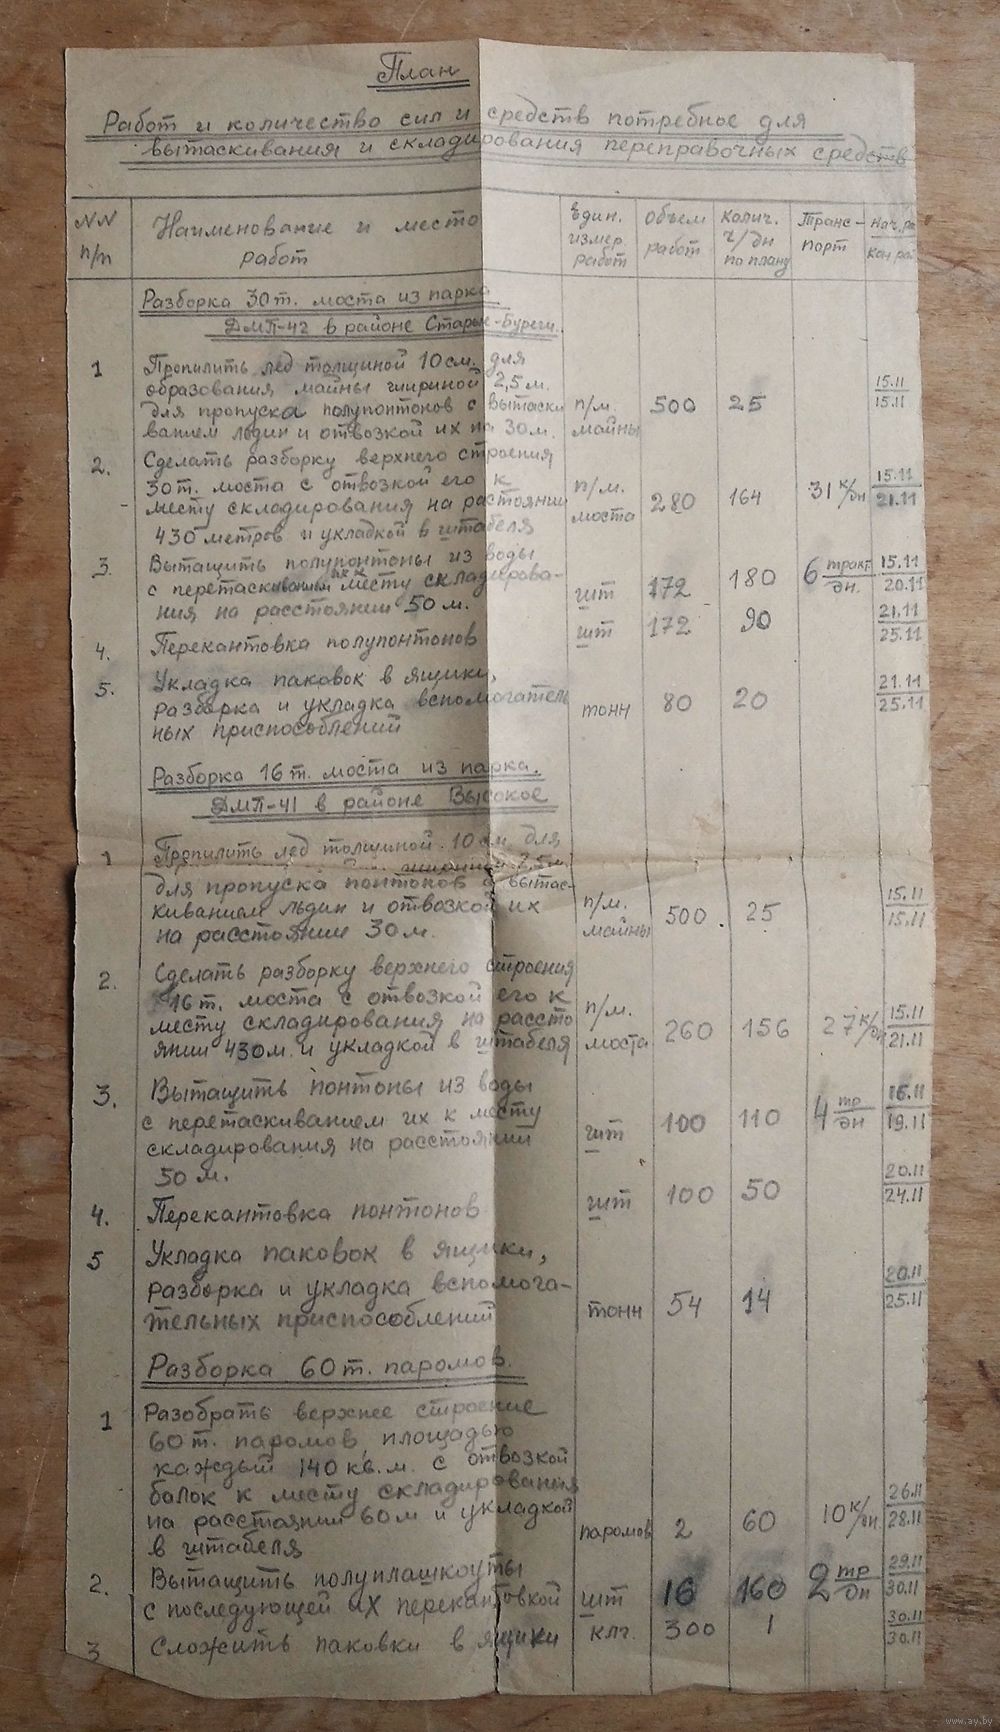 План
Работ и количество сил и средств потребное для
вытаскивания и складирования переправочных средств
NN п/п
Наименование и место работ
Един. измер. работ
Объем работ
Колич. ч/дн по плану
Транс-порт
Нач. ра
Кон. раб
Разборка 30т. моста из парка
ДМП-42 в районе Старые-Буреги.
1 Пропилить лед толщиной 10 см. для
образования майны шириной 2,5 м.
для пропуска полупонтонов с вытаски
ванием льдин и отвозкой их на 30 м.
п/м. майны 500 25 15.11 15.11
2. Сделать разборку верхнего строения
30т. моста с отвозкой его к
месту складирования на растоянии
430 метров и укладкой в штабеля
п/м. моста 280 164 31 к/дн 15.11 21.11
3. Вытащить полупонтоны из воды
с перетаскиванием их к месту складирова-
ния на расстоянии 50 м.
шт 172 180 6 тракт/дн. 15.11 20.11
4. Перекантовка полупонтонов
шт 172 90 21.11 25.11
5. Укладка паковок в ящики,
разборка и укладка вспомогатель
ных приспособлений
тонн 80 20 21.11 25.11
Разборка 16т. моста из парка.
ДМП-41 в районе Высокое
1 Пропилить лед толщиной 10 см для
шириной 2,5 м
для пропуска понтонов с вытас-
киванием льдин и отвозкой их
на расстояние 30 м.
п/м. майны 500 25 15.11 15.11
2. Сделать разборку верхнего строения
16т. моста с отвозкой его к
месту складирования на рассто
янии 430 м. и укладкой в штабеля
п/м. моста 260 156 27 к/дн 15.11 21.11
3. Вытащить понтоны из воды
с перетаскиванием их к месту
складирования на расстоянии
50 м.
шт 100 110 4 тр/дн 16.11 19.11
4. Перекантовка понтонов
шт 100 50 20.11 24.11
5 Укладка паковок в ящики,
разборка и укладка вспомога-
тельных приспособлений
тонн 54 14 20.11 25.11
Разборка 60т. паромов.
1 Разобрать верхнее строение
60т. паромов, площадью
каждый 140 кв. м. с отвозкой
балок к месту складирования
на расстоянии 60 м и укладкой
в штабеля
паромов 2 60 10 к/дн. 26.11 28.11
2. Вытащить полуплашкоуты
с последующей их перекантовкой
шт 16 160 2 тр/дн 29.11 30.11
3 Сложить паковки в ящики
клг. 300 1 30.11 30.11
www.ay.by